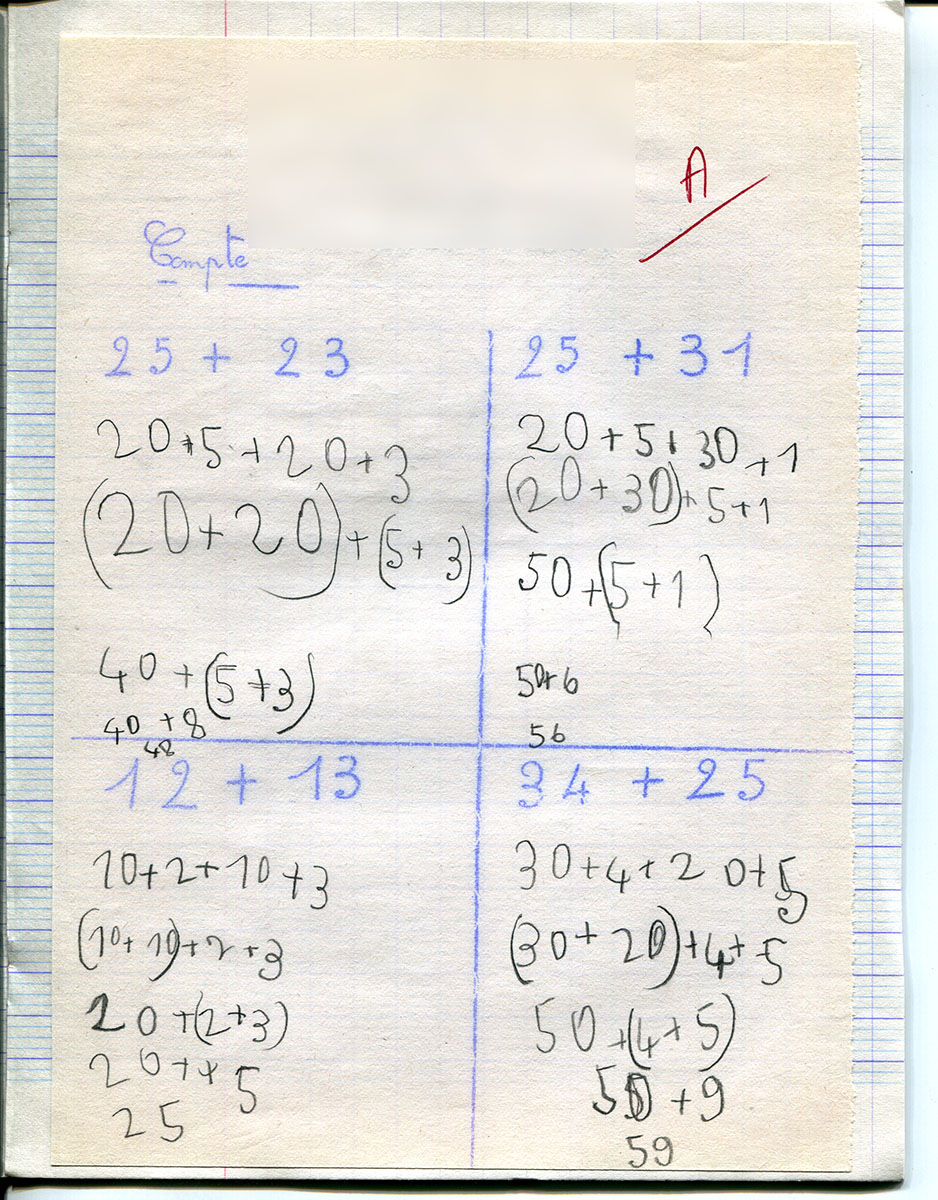 A
Compte
25 + 23
20+5+20+3
(20+20)+(5+3)
40+(5+3)
40+8
48
25 + 31
20+5+30+1
(20+30)+5+1
50+(5+1)
50+6
56
12 + 13
10+2+10+3
(10+10)+2+3
20+(2+3)
20++5
25
34 + 25
30+4+20+5
(30+20)+4+5
50+(4+5)
50+9
59